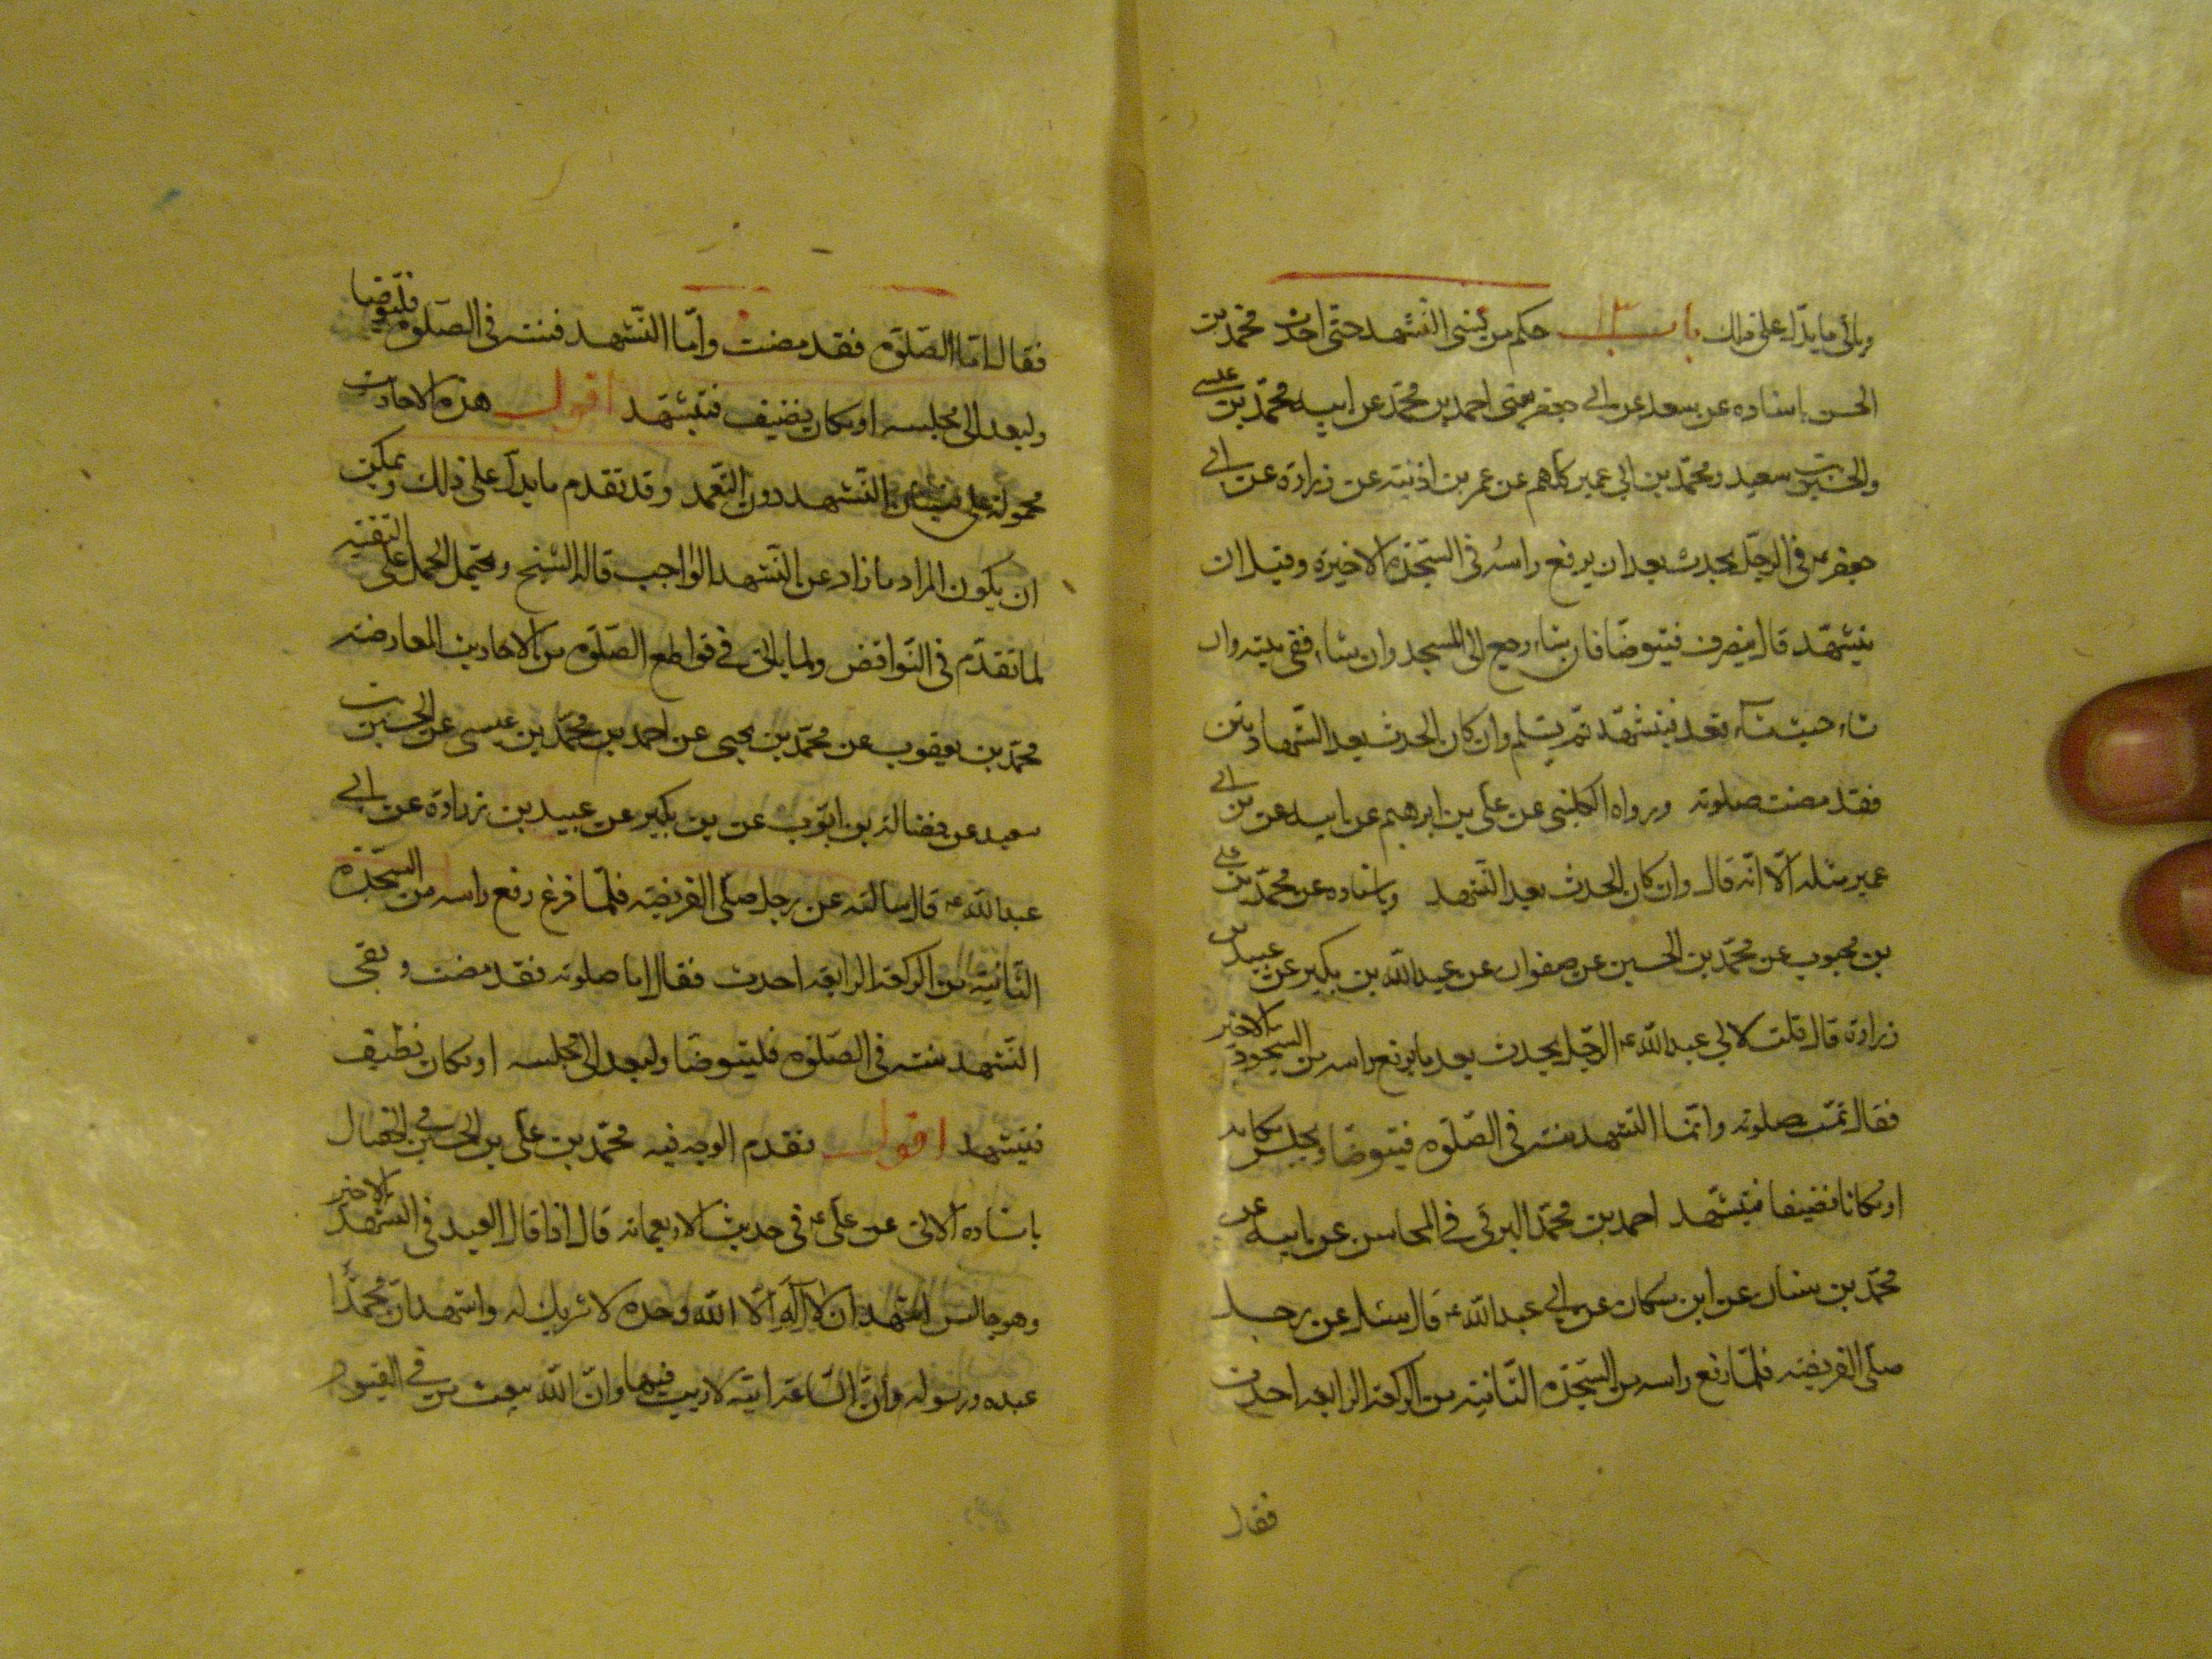 ويأتي ما يدل على ذلك باب ١٣ حكم من نسى التشهد حتى احدث محمد بن
الحسن باسناده عن سعد عن ابي جعفر يعنى احمد بن محمد عن ابيه محمد بن عيسى
والحسين بن سعيد ومحمد بن ابي عمير كلهم عن عمر بن اذنية عن زرارة عن ابي
جعفر ع في الرجل يحدث بعد ان يرفع راسه في السجدة الاخيرة وقبل ان
يتشهد قال ينصرف فيتوضا فان شاء رجع الى المسجد وان شاء ففي بيته وان
شاء حيث شاء يقعد فيتشهد ثم يسلم وان كان الحدث بعد الشهادتين
فقد مضت صلوته ورواه الكلينى عن على بن ابرهيم عن ابيه عن بن ابي
عمير مثله الا انه قال وان كان الحدث بعد التشهد وباسناده عن محمد بن على
بن محبوب عن محمد بن الحسين عن صفوان عن عبد الله بن بكير عن عبيد بن
زرارة قال قلت لابي عبد الله ع الرجل يحدث بعد ما يرفع راسه من السجود الاخير
فقال تمت صلوته وانما التشهد سنة في الصلوة فيتوضا ويجلس مكانه
او مكانا نضيفا فيتشهد احمد بن محمد البرقى في المحاسن عن ابيه عن
محمد بن سنان عن ابن مسكان عن ابي عبد الله ع قال سئل عن رجل
صلى الفريضة فلما رفع راسه من السجدة الثانية من الركعة الرابعة احدث
فقال
فقال اما الصلوة فقد مضت واما التشهد فسنة في الصلوة فليتوضا
وليعد الى مجلسه او مكان نضيف فيتشهد اقول هذه الاحاديث
محمولة على نسيان التشهد دون التعمد وقد تقدم ما يدل على ذلك ويمكن
ان يكون المراد ما زاد عن التشهد الواجب قاله الشيخ ويحتمل الحمل على التقية
لما تقدم في النواقض ولما ياتى في قواطع الصلوة من الاحاديث المعارضة
محمد بن يعقوب عن محمد بن يحيى عن احمد بن محمد بن عيسى عن الحسين بن
سعيد عن فضالة بن ايوب عن بن بكير عن عبيد بن زرارة عن ابي
عبد الله ع قال سالته عن رجل صلى الفريضة فلما فرغ رفع راسه من السجدة
الثانية من الركعة الرابعة احدث فقال اما صلوته فقد مضت وبقى
التشهد سنة في الصلوة فليتوضا وليعد الى مجلسه او مكان نظيف
فيتشهد اقول تقدم الوجه فيه محمد بن على بن الحسين في الخصال
باسناده الاتى عن على ع في حديث الاربعمائة قال اذا قال العبد في التشهد الاخير
وهو جالس اشهد ان لا اله الا الله وحده لا شريك له واشهد ان محمدا
عبده ورسوله وان الساعة اتية لا ريب فيها وان الله يبعث من في القبور